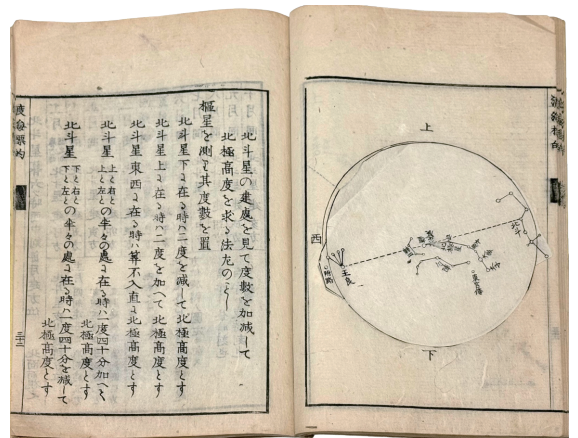 上
西
王良
北斗
下
北斗星の建處を見て度數を加減して
北極高度を求る法左のごとし
樞星を測り其度數を置
北斗星下に在る時ハ二度を減して北極高度とす
北斗星上に在る時ハ二度を加へて北極高度とす
北斗星東西に在る時ハ算不入直に北極高度とす
北斗星上と右と上と左との半々の處に在る時ハ一度四十分加へて
北極高度とす
北斗星下と右と下と左との半々の處に在る時ハ一度四十分を減して
北極高度とす